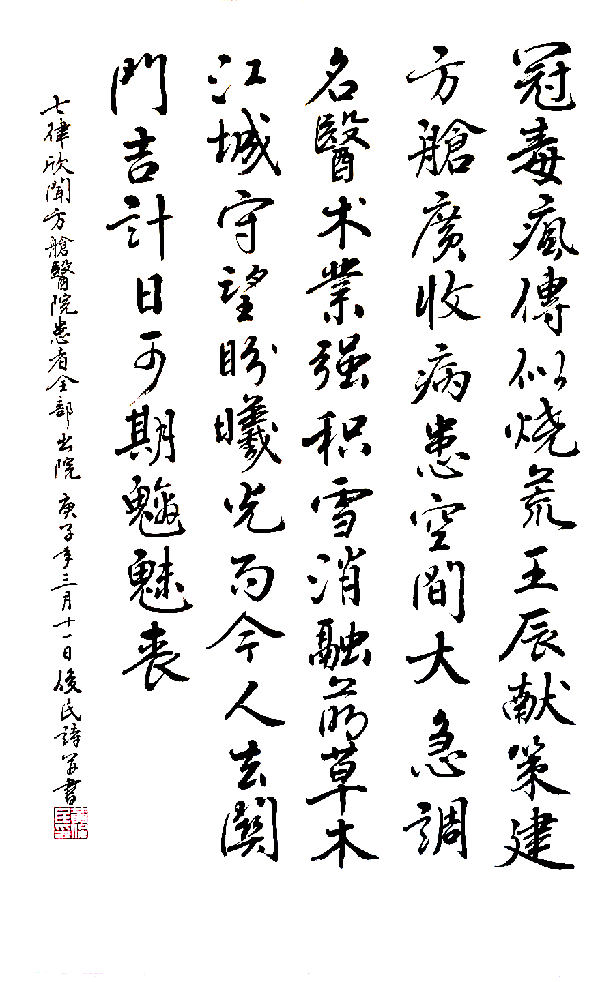 冠毒瘋傳似燒荒王辰献策建
方艙廣收病患空間大急調
名醫术業强积雪消融萌草木
江城守望盼曦光而今人去關
門吉計日可期魑魅喪
七律欣聞方艙醫院患者全部出院 庚子年三月十一日俊民詩并書